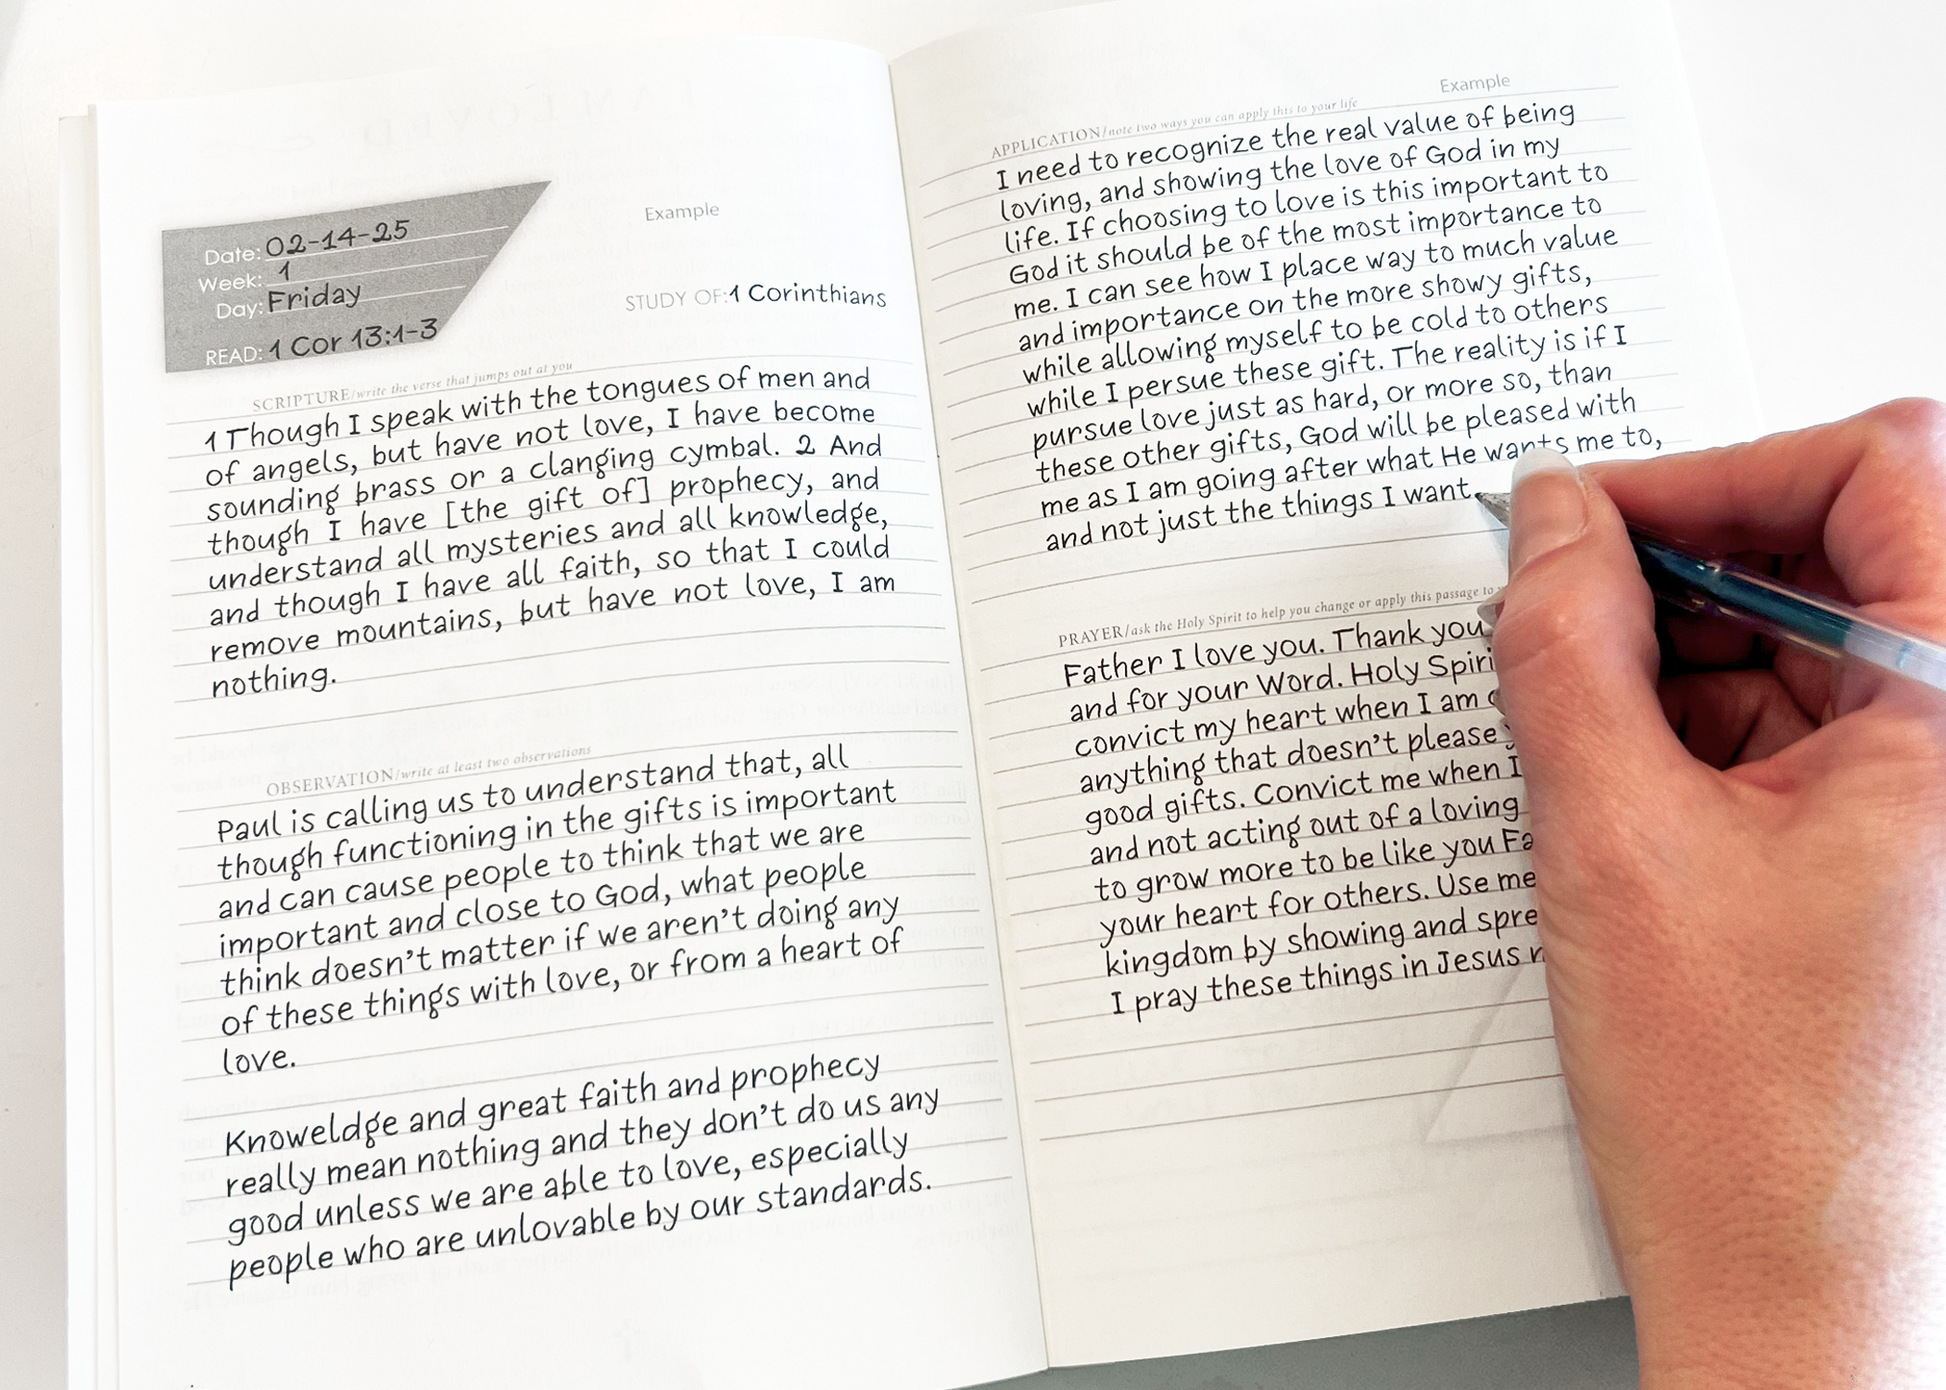 Example
Date: 02-14-25
Week: 1
Day: Friday
READ: 1 Cor 13:1-3
STUDY OF: 1 Corinthians
SCRIPTURE/write the verse that jumps out at you
1 Though I speak with the tongues of men and
of angels, but have not love, I have become
sounding brass or a clanging cymbal. 2 And
though I have [the gift of] prophecy, and
understand all mysteries and all knowledge,
and though I have all faith, so that I could
remove mountains, but have not love, I am
nothing.
OBSERVATION/write at least two observations
Paul is calling us to understand that, all
though functioning in the gifts is important
and can cause people to think that we are
important and close to God, what people
think doesn't matter if we aren't doing any
of these things with love, or from a heart of
love.
Knoweldge and great faith and prophecy
really mean nothing and they don't do us any
good unless we are able to love, especially
people who are unlovable by our standards.
Example
APPLICATION/note two ways you can apply this to your life
I need to recognize the real value of being
loving, and showing the love of God in my
life. If choosing to love is this important to
God it should be of the most importance to
me. I can see how I place way to much value
and importance on the more showy gifts,
while allowing myself to be cold to others
while I persue these gift. The reality is if I
pursue love just as hard, or more so, than
these other gifts, God will be pleased with
me as I am going after what He wants me to,
and not just the things I want.
PRAYER/ask the Holy Spirit to help you change or apply this passage to
Father I love you. Thank you
and for your Word. Holy
convict my heart when I am
anything that doesn't please
good gifts. Convict me when I
and not acting out of a loving
to grow more to be like you
your heart for others. Use me
kingdom by showing and
I pray these things in Jesus